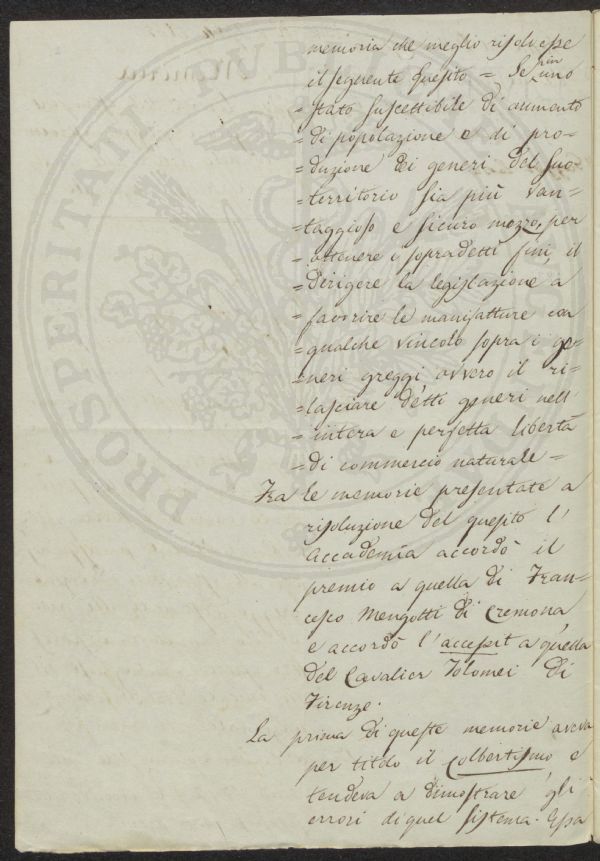 memoria che meglio risolvesse
il seguente Quesito = Se in uno
= stato suscettibile di aumento
= di popolazione e di pro=
= duzione dei generi del suo
= territorio sia più van=
= taggioso e sicuro mezzo, per
= ottenere i sopradetti fini, il
= dirigere la legislazione a
= favorire le manifatture con
= qualche vincolo sopra i ge=
= neri greggi ovvero il ri=
= lasciare detti generi nell'
= intera e perfetta libertà
= di commercio naturale =
Fra le memorie presentate a
risoluzione del quesito l'
Accademia accordò il
premio a quella di Fran=
cesco Mengotti di Cremona
e accordò l'accessit a quella
del Cavalier Tolomei di
Firenze.
La prima di queste memorie aveva
per titolo il Colbertismo e
tendeva a dimostrare gli
errori di quel sistema. Essa
PROSPERITATI PUBLICAE